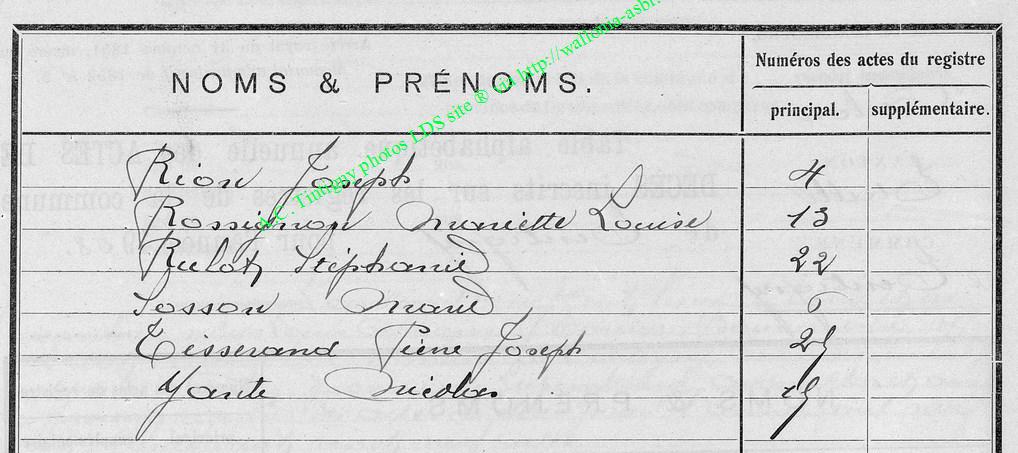 A.C. Tintigny photos LDS site ® via http://wallonia-asbl.
NOMS & PRÉNOMS.
Numéros des actes du registre
principal. supplémentaire.
Rion Joseph 4
Rossignon Mariette Louise 13
Rulot Stéphanie 22
Sosson Marie 6
Tisserand Pierre Joseph
Yante Nicolas